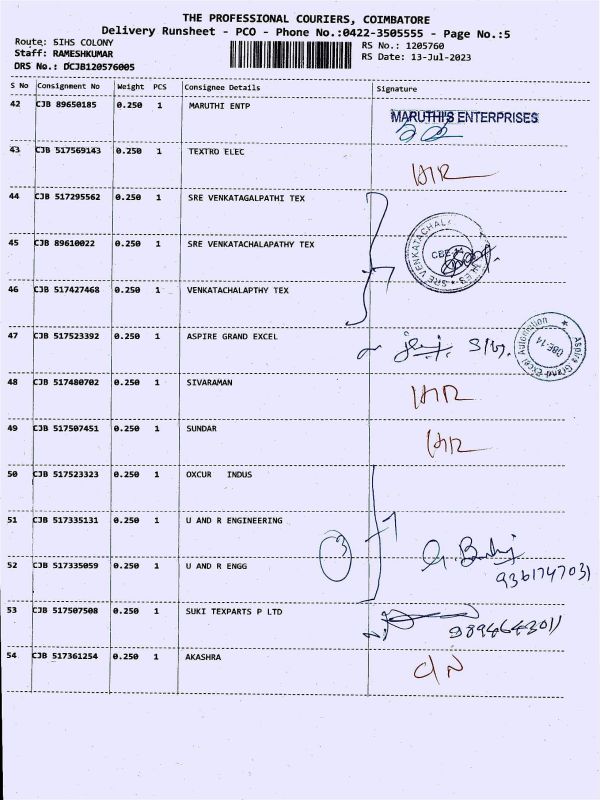 THE PROFESSIONAL COURIERS, COIMBATORE
Delivery Runsheet - PCO - Phone No.:0422-3505555 - Page No.:5
Route: SIHS COLONY
Staff: RAMESHKUMAR
DRS No.: DCJB120576005
RS No.: 1205760
RS Date: 13-Jul-2023
S No Consignment No Weight PCS Consignee Details Signature
42 CJB 89650185 0.250 1 MARUTHI ENTP
MARUTHI'S ENTERPRISES
43 CJB 517569143 0.250 1 TEXTRO ELEC
44 CJB 517295562 0.250 1 SRE VENKATAGALPATHI TEX
45 CJB 89610022 0.250 1 SRE VENKATACHALAPATHY TEX
46 CJB 517427468 0.250 1 VENKATACHALAPTHY TEX
47 CJB 517523392 0.250 1 ASPIRE GRAND EXCEL
Aspire Grand Excel Automation
CBE-14
48 CJB 517480702 0.250 1 SIVARAMAN
49 CJB 517507451 0.250 1 SUNDAR
50 CJB 517523323 0.250 1 OXCUR INDUS
51 CJB 517335131 0.250 1 U AND R ENGINEERING
3
52 CJB 517335059 0.250 1 U AND R ENGG
9361747031
53 CJB 517507508 0.250 1 SUKI TEXPARTS P LTD
9894643011
54 CJB 517361254 0.250 1 AKASHRA